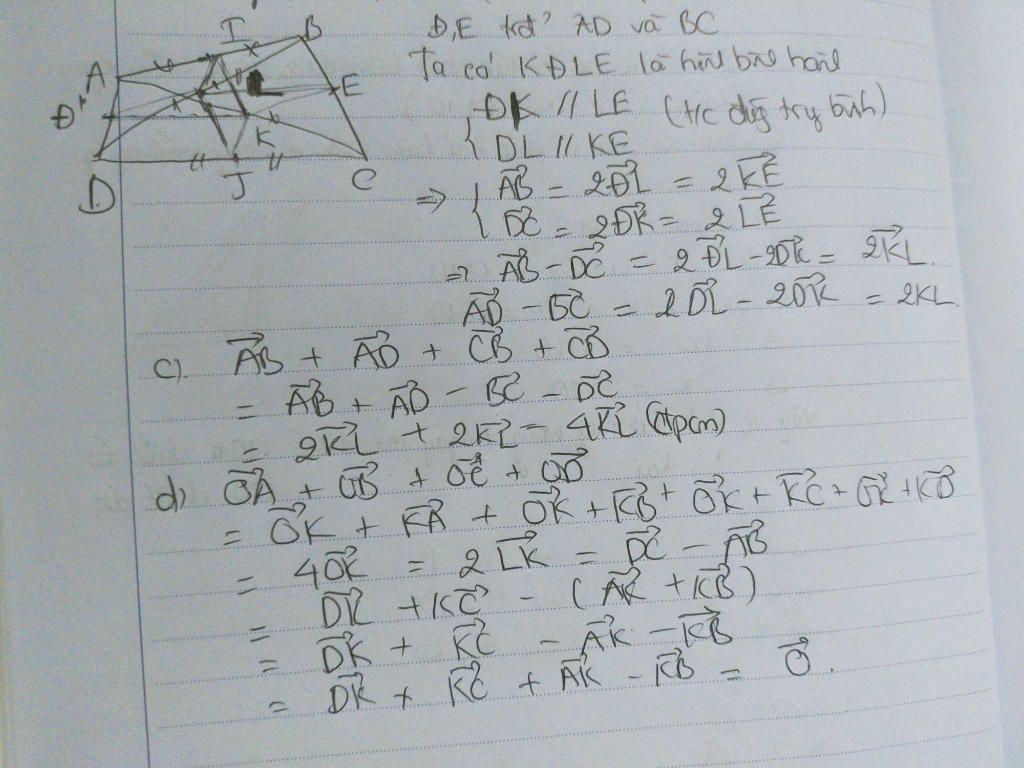 I
B
A
L
E
Đ'
K
D
J
C
Đ,E trđ' AD và BC
Ta có KĐLE là hình bình hành
{ ĐK // LE (t/c đg try bình)
DL // KE
=> { AB→ = 2ĐL→ = 2KE→
DC→ = 2ĐK→ = 2LE→
=> AB→ - DC→ = 2ĐL→ - 2DK→ = 2KL→.
AD→ - BC→ = 2DL→ - 2DK→ = 2KL
c). AB→ + AD→ + CB→ + CD→
= AB→ + AD→ - BC→ - DC→
= 2KL→ + 2KL→ = 4KL→ (đpcm)
d) OA→ + OB→ + OC→ + OD→
= OK→ + KA→ + OK→ + KB→ + OK→ + KC→ + OK→ + KD→
= 4OK→ = 2LK→ = DC→ - AB→
= DK→ + KC→ - (AK→ + KB→)
= DK→ + KC→ - AK→ - KB→
= DK→ + KC→ + AK→ - KB→ = O→.